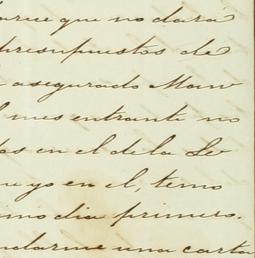 que no dará
presupuestos de
asegurado Mau
mes entrante no
en el de la Le
yo en el, temo
dia primero.
una carta